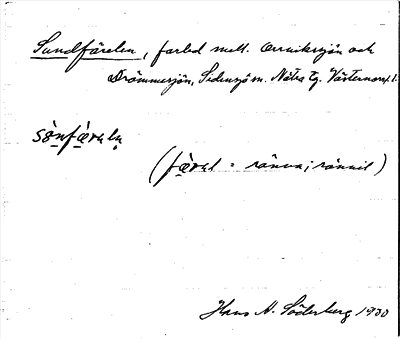 Sundfärelen, farled mell. Arnikesjön och
Drömmesjön, Sidensjö sn. Nätra tg. Västernorrl. l.
sònfǽrəln̥
(fǽrəl = ränna; rännil)
Hans A. Söderberg 1930